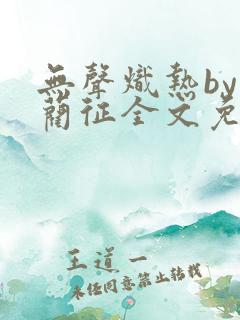 無聲熾熱by
蔺征全文免
王道一
未经同意禁止转载